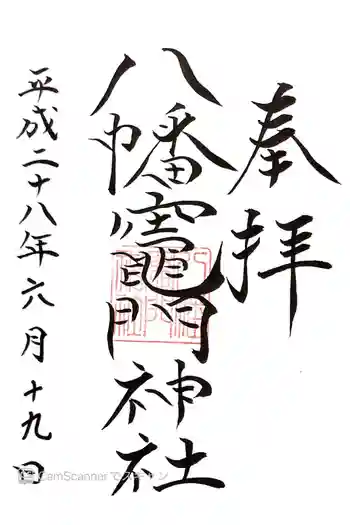 奉拝
八幡竈門神社
平成二十八年六月十九日
CamScanner でスキャン